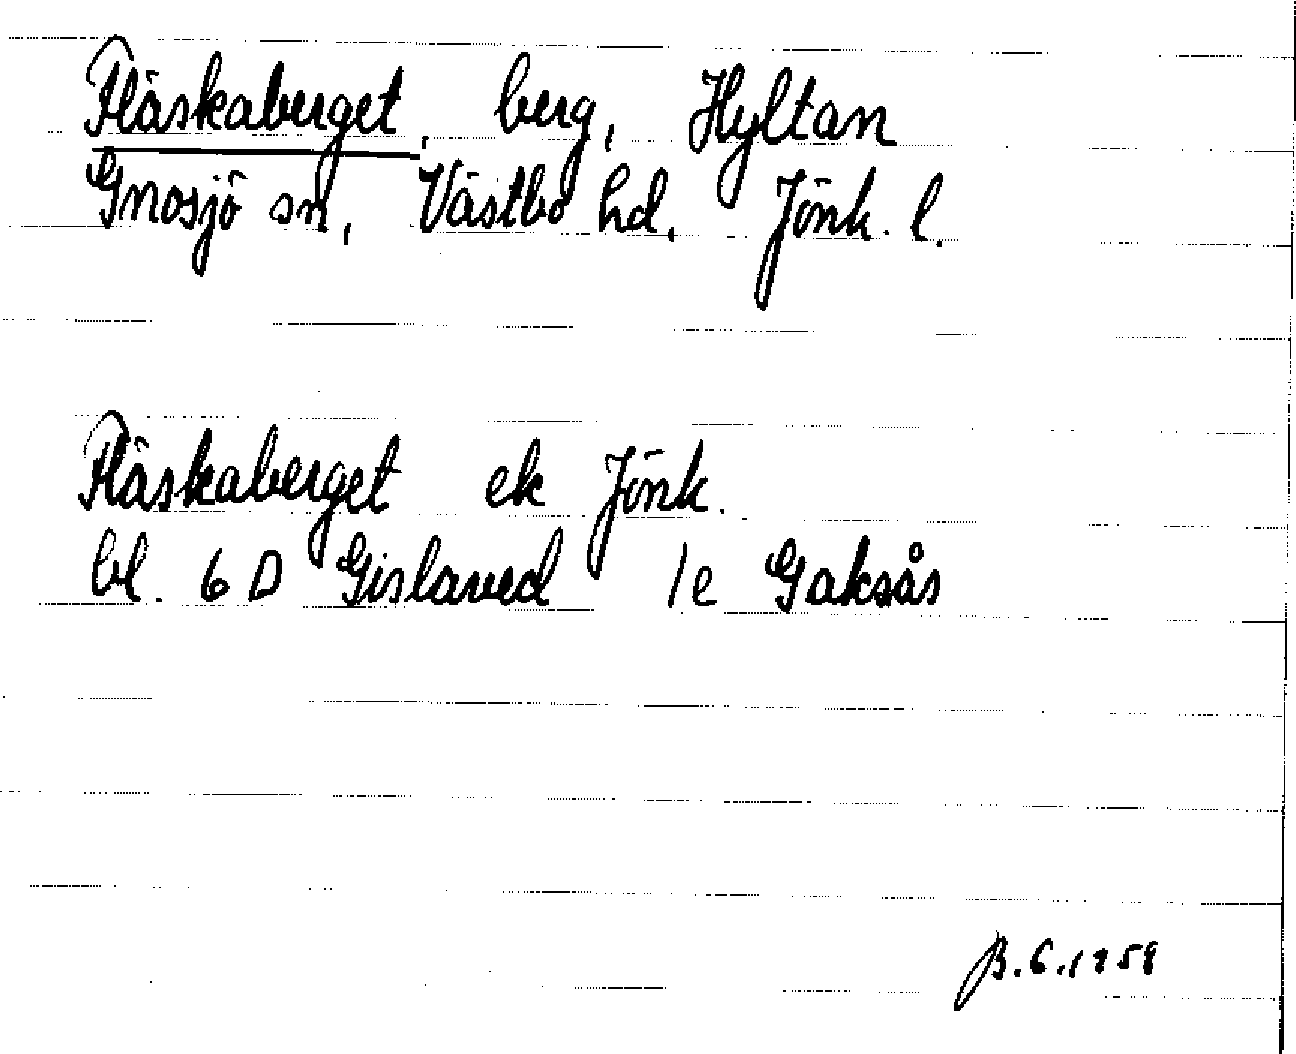 Fläskaberget, berg, Hyltan
Gnosjö sn, Västbo hd, Jönk. l.
Fläskaberget ek Jönk.
bl. 6 D Gislaved 1e Gaksås